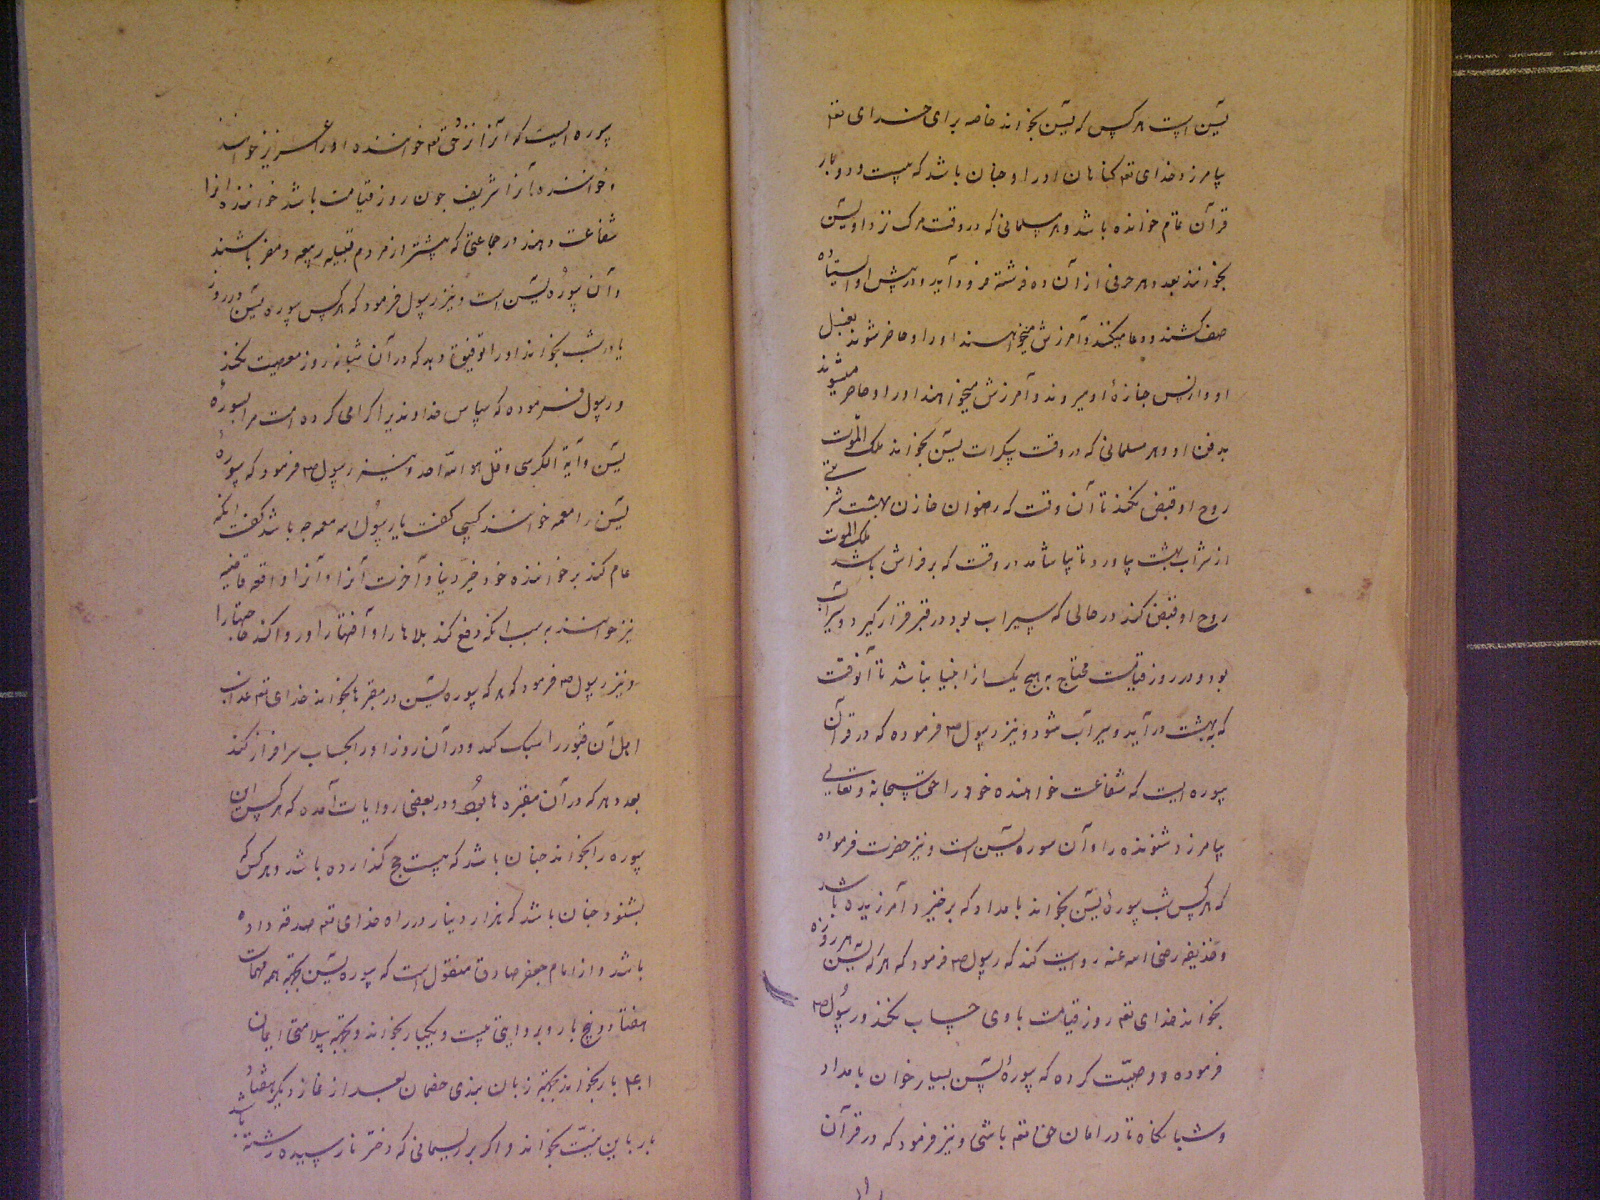 یس است هر کس که یس بخواند خاصه برای خدای تعم
بیامرزد خدای تعم گناهان او را و چنان باشد که بیست و دو بار
قرآن تمام خوانده باشد و هر مسلمانی که در وقت مرک نزد او یس
بخوانند بعدد هر حرفی از آن ده فرشته فرود آید و در پیش او ایستاده
صف کشند و دعا میکنند و آمرزش میخواهند او را و حاضر شوند بغسل
او و از پس جنازهٔ او میروند و آمرزش میخواهند او را و حاضر میشوند
بدفن او و هر مسلمانی که در وقت سکرات یس بخواند ملک الموت
روح او قبض نکند تا آن وقت که رضوان خازن بهشت شربتی
از شراب بهشت بیاورد تا بیاشامد در وقت که بر فراش باشد ملک الموت
روح او قبض کند در حالی که سیراب بود در قبر قرار گیرد و سیراب
بود و در روز قیامت محتاج به هیچ یک از انبیا نباشد تا آنوقت
که به بهشت درآید و سیرآب شود و نیز رسول ص فرموده که در قرآن
سوره ایست که شفاعت خواهنده خود را حق سبحانه و تعالی
بیامرزد شنونده را و آن سوره یس است و نیز حضرت فرموده
که هر کس شب سورهٔ یس بخواند بامداد که برخیزد آمرزیده باشد
و حذیفه رضی الله عنه روایت کند که رسول ص فرمود که هر که یس هر روزه
بخواند خدای تعم روز قیامت با وی حساب نکند و رسول ص
فرموده و وصیّت کرده که سورهٔ یس بسیار خوان بامداد
و شبانکاه تا در امان حق تعم باشی و نیز فرمود که در قرآن
سوره ایست که آنرا نزد حق تعم خوانند و او را عزیز خوانند
و خواننده آنرا شریف چون روز قیامت باشد خواننده او را
شفاعت دهند در جماعتی که بیشتر از مردم قبیله ربیعه و مضر باشند
و آن سورهٔ یس است و نیز رسول فرمود که هر کس سوره یس در روز
یا در شب بخواند او را توفیق دهد که در آن شبانه روز معصیت نکند
و رسول فرموده که سپاس خداوندیرا که گرامی کرده است مرا بسورهٔ
یس و آیة الکرسی و قل هو الله احد و نیز رسول ص فرمود که سورهٔ
یس را معمه خوانند کسی گفت یا رسول الله معمه چه باشد گفت آنکه
عام کند بر خواننده خود خیر دنیا و آخرت آنرا و آنرا دافعه قاضیه
نیز خوانند به سبب آنکه دفع کند بلاها را و آفتها را و روا کند حاجتها را
و نیز رسول ص فرمود که هر که سوره یس در مقبرها بخواند خدای تعم عذاب
اهل آن قبور را سبک کند و در آن روز او را بحساب سرافراز کند
بعدد هر که در آن مقبره ها بود و در بعضی روایات آمده که هر کس این
سوره را بخواند چنان باشد که بیست حج گذارده باشد و هر کس که
بشنود چنان باشد که هزار دینار در راه خدای تعم صدقه داده
باشد و از امام جعفر صادق منقول است که سوره یس بجهة همه مهمات
هفتاد و پنج بار و بروایتی بیست و یکبار بخواند و بجهة سلامتی ایمان
بار بخواند بجهة زبان بندی خصمان بعد از نماز دیگر هفتاد
بار باین نیّت بخواند و اگر بر ریسمانی که دختر نارسیده رشته باشد